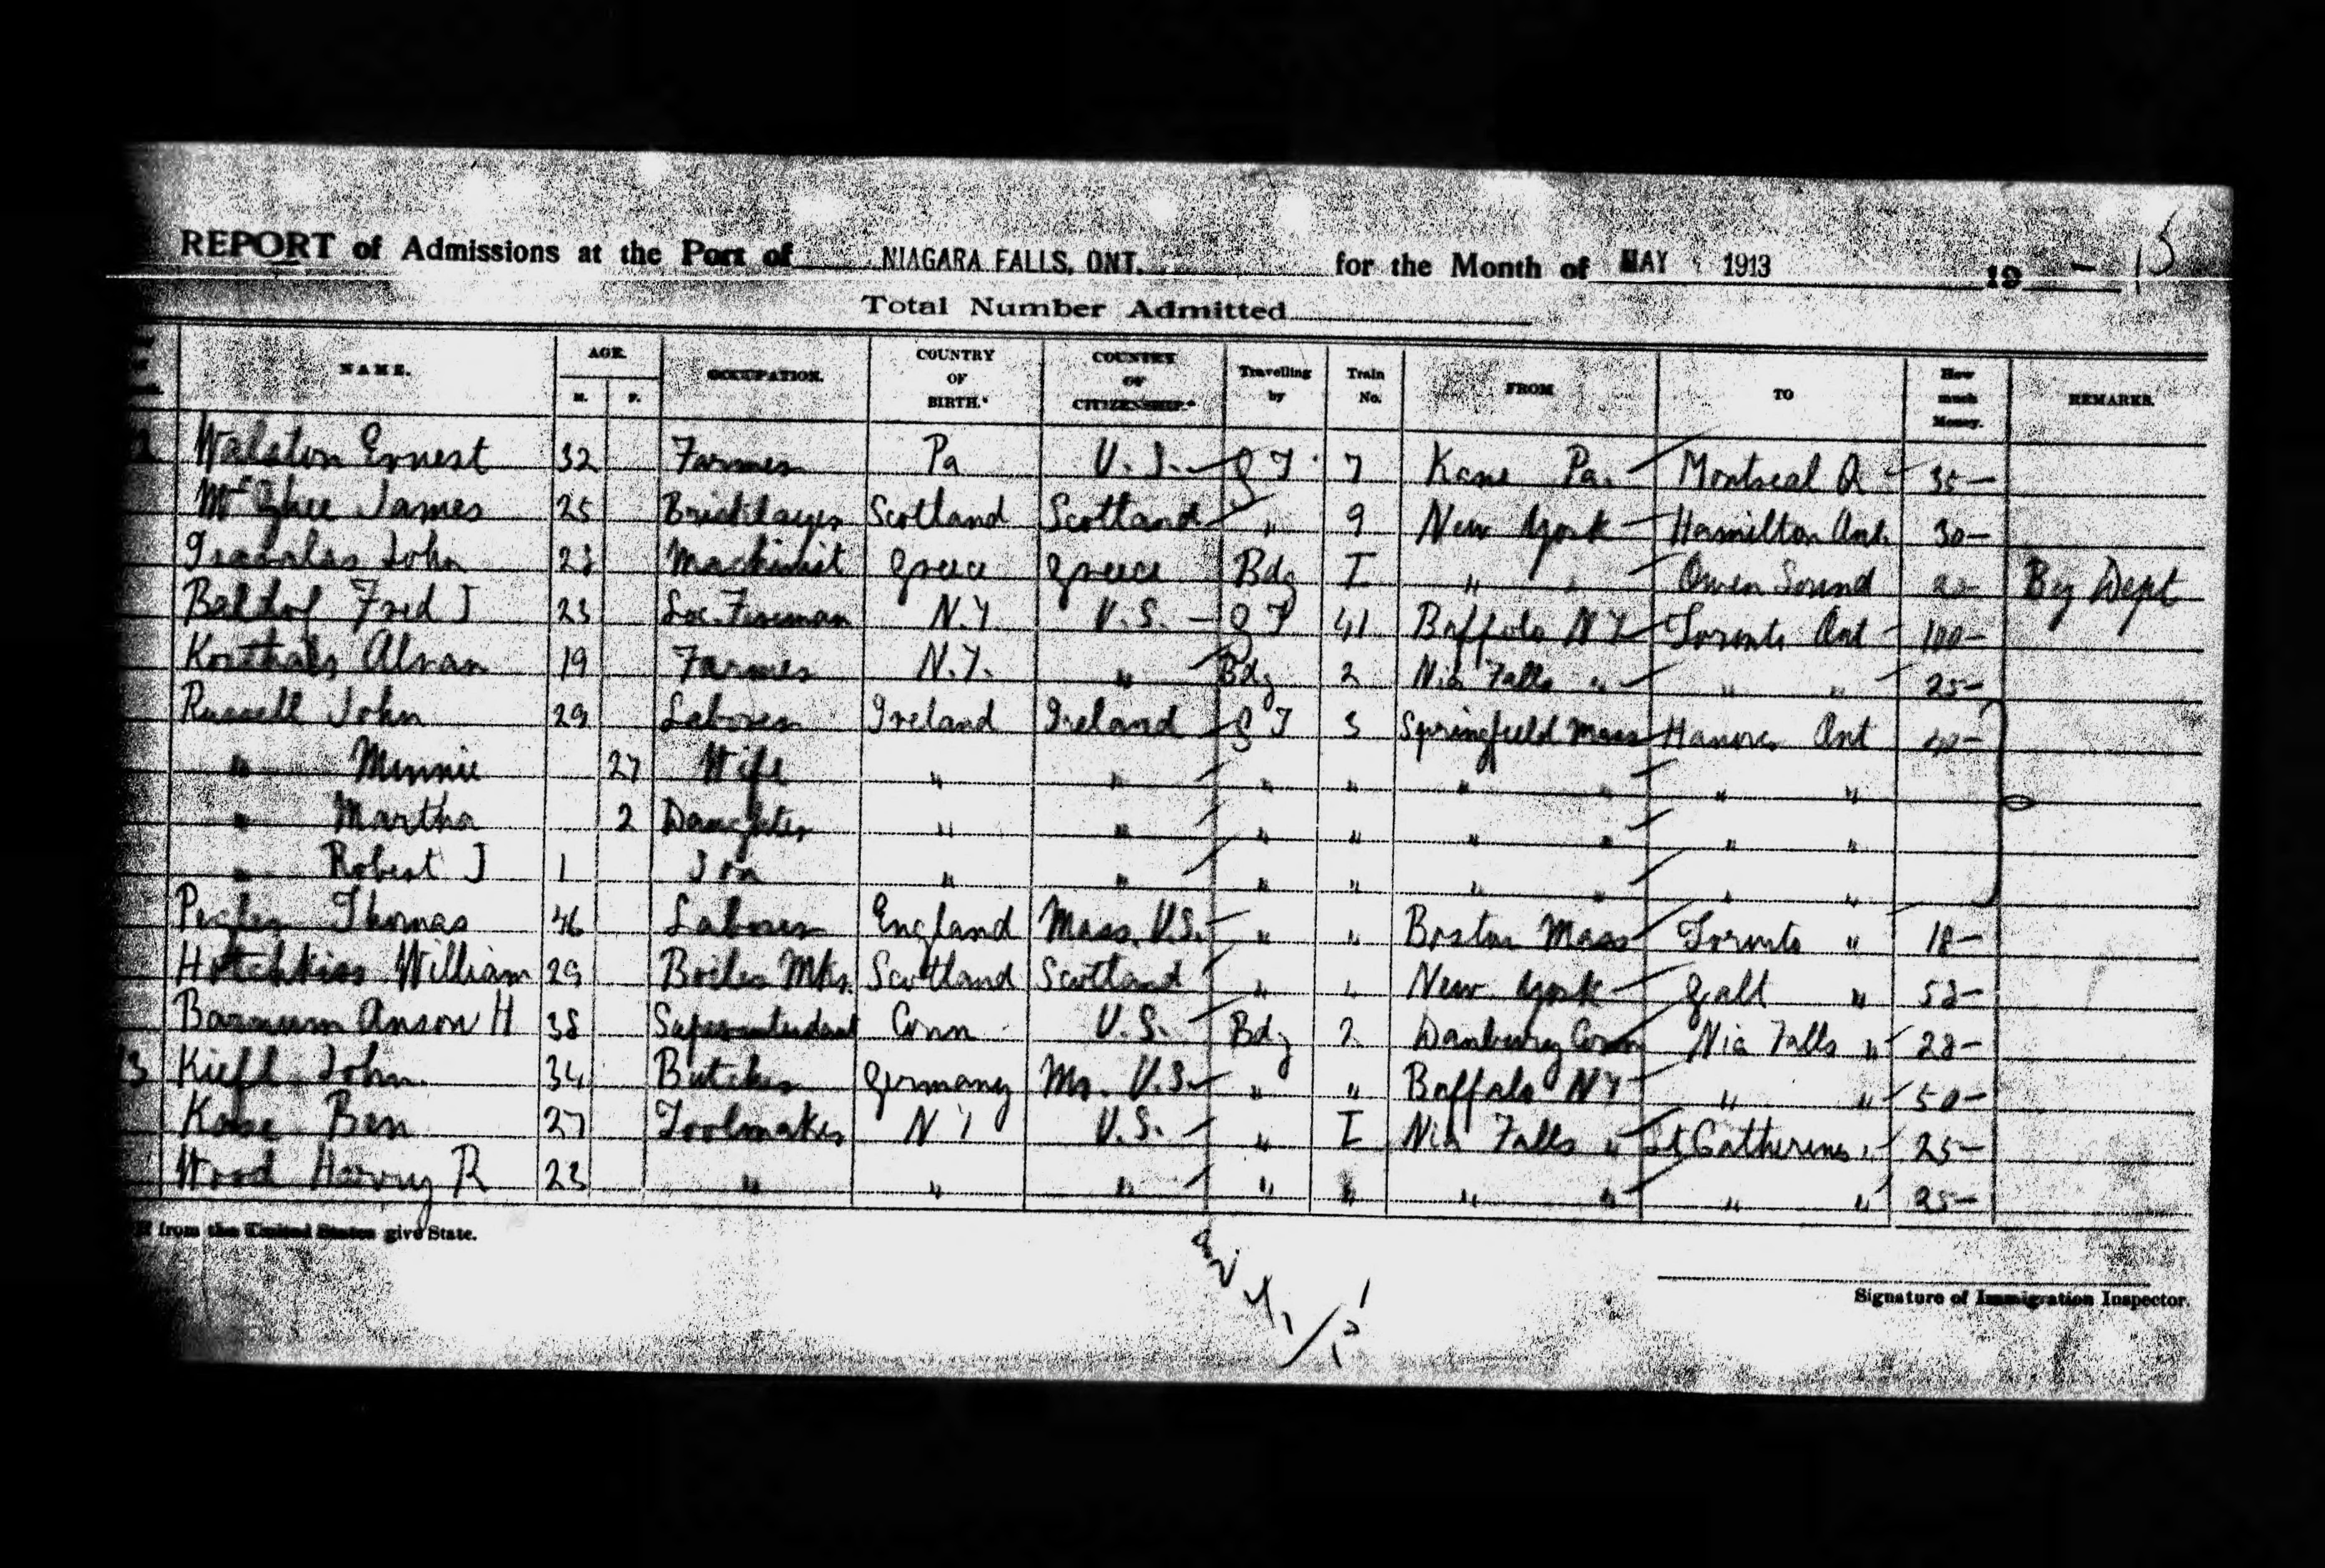 REPORT of Admissions at the Port of NIAGARA FALLS, ONT. for the Month of MAY 1913 19 - 15
Total Number Admitted
NAME. AGE. M. F. OCCUPATION. COUNTRY OF BIRTH.* COUNTRY OF CITIZENSHIP.* Travelling by Train No. FROM TO How much Money. REMARKS.
Walston Ernest 32 Farmer Pa U.S. G T 7 Kane Pa. Montreal Q 35-
McGhee James 25 Bricklayer Scotland Scotland " 9 New York Hamilton Ont. 30-
John Machinist Greece Greece Bdg I " " Owen Sound By Dept
Fred J 23 Loc. Fireman N.Y. U.S. G T 41 Buffalo N Y Toronto Ont 100-
19 Farmer N.Y. " Bdg 2 Nia Falls " " " 25-
Russell John 29 Laborer Ireland Ireland G T 5 Springfield Mass Hanover Ont
" Minnie 27 Wife " " " " " " " "
" Martha 2 Daughter " " " " " " " "
" Robert J 1 Son " " " " " " " "
Thomas 46 Laborer England Mass. U.S. " " Boston Mass Toronto " 18-
Hotchkiss William 29 Boiler Mkr. Scotland Scotland " " New York Galt "
Barnum Anson H 38 Superintendent Conn U.S. Bdg 2 Danbury Conn Nia Falls "
3 Kiefl John 34 Butcher Germany U.S. " " Buffalo N Y " " 50-
Ben 27 Toolmaker N Y U.S. " I Nia Falls " St Catherines " 25-
Wood Harvey R 23 " " " " " " " " " 25-
from the United States give State.
Signature of Immigration Inspector.